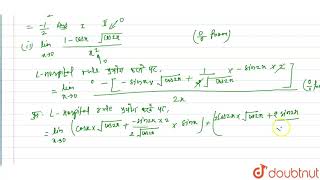 = -1/2 Ans
(ii) lim x→0 (1 - cosx √cos2x) / x² (0/0 form)
L-hospital rule प्रयोग करने पर.
= lim x→0 -[-sinx √cos2x + 1/(2√cos2x) × -sin2x × 2] / 2x
पुनः L-hospital rule प्रयोग करने पर.
= lim x→0 (cosx × √cos2x + (-sin2x × 2)/(2√cos2x) × sinx) + (2cos2x × √cos2x + 2 sin2x
doubtnut